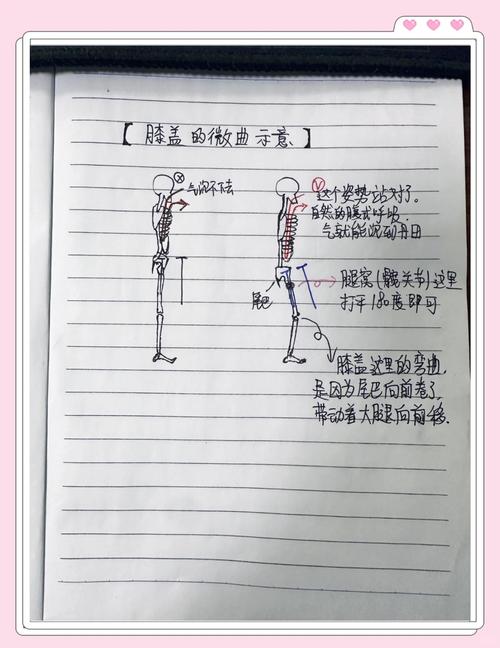 【膝盖的微曲示意】
ⓧ
气沉不下去
ⓥ
这个姿势站对了。
自然的腹式呼吸.
气就能沉到丹田
腿窝(髋关节)这里
打平180度即可
尾巴
膝盖这里的弯曲,
是因为尾巴向前卷了,
带动着大腿向前移.